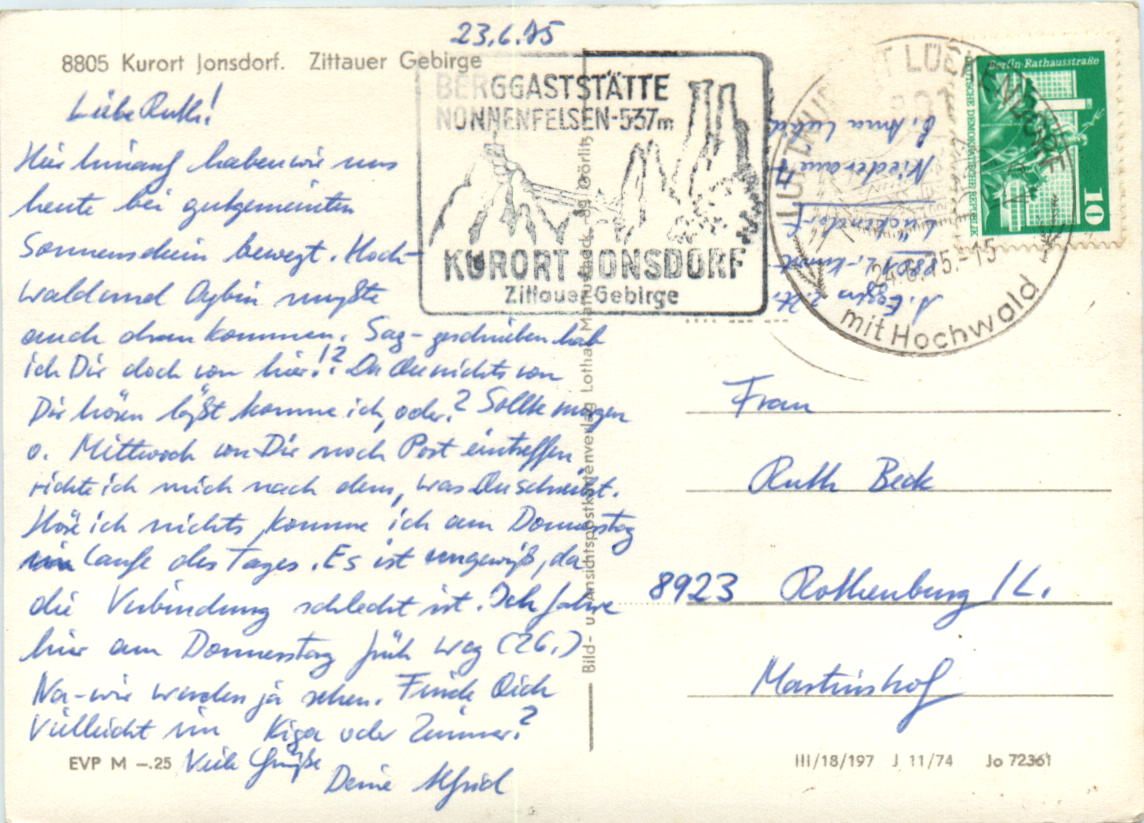 23.6.75
8805 Kurort Jonsdorf. Zittauer Gebirge
Liebe Ruth!
Hier hinauf haben wir uns
heute bei gutgemeinten
Sonnenschein bewegt. Hoch-
wald und Oybin mußte
auch dran kommen. Sag - geschrieben hab
ich Dir doch von hier!? Da Du nichts von
Dir hören läßt komme ich, oder? Sollte morgen
o. Mittwoch von Dir noch Post eintreffen
richte ich mich nach dem, was Du schreibst.
Höre ich nichts, komme ich am Donnerstag
im Laufe des Tages. Es ist ungewiß, da
die Verbindung schlecht ist. Ich fahre
hier am Donnerstag früh weg (26.)
Na - wir werden ja sehen. Finde Dich
vielleicht im Kiga oder Zimmer?
Viele Grüße
Deine Astrid
EVP M –.25
BERGGASTSTÄTTE
NONNENFELSEN-537m
KURORT JONSDORF
Zittauer Gebirge
LUFTKURORT LÜCKENDORF
24.6.75.-15
mit Hochwald
Berlin-Rathausstraße
DEUTSCHE DEMOKRATISCHE REPUBLIK
10
A. Eggers z. Zt.
Lückendorf
Niederaue
b. Anna
Bild- und Ansichtspostkartenverlag Lothar 89 Görlitz
Frau
Ruth Beck
8923 Rothenburg /L.
Martinshof
III/18/197 J 11/74 Jo 72361